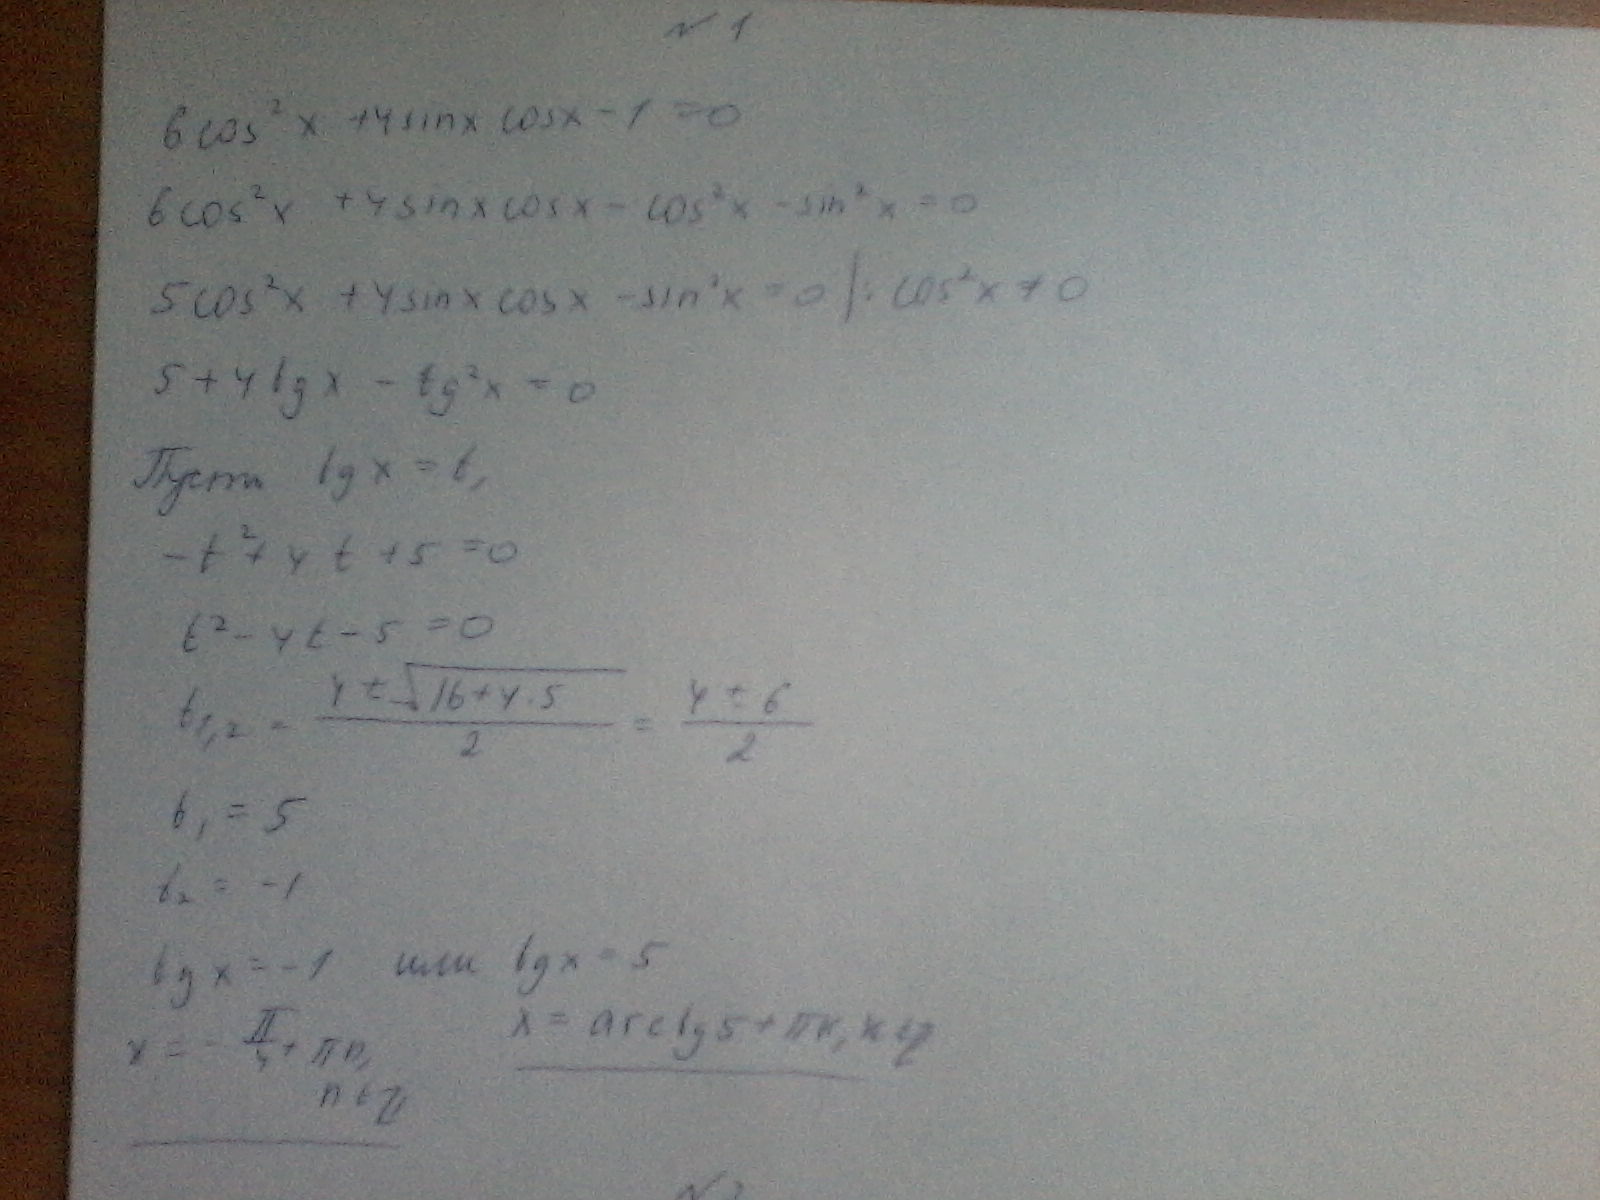 № 1
6cos²x + 4sinx cosx - 1 = 0
6cos²x + 4sinx cosx - cos²x - sin²x = 0
5cos²x + 4sinx cosx - sin²x = 0 |: cos²x ≠ 0
5 + 4tgx - tg²x = 0
Пусть tgx = t,
-t² + 4t + 5 = 0
t² - 4t - 5 = 0
t₁,₂ = (4 ± √(16 + 4·5))/2 = (4 ± 6)/2
t₁ = 5
t₂ = -1
tgx = -1 или tgx = 5
x = -π/4 + πn, x = arctg5 + πk, k∈Z
n∈Z
№ 2